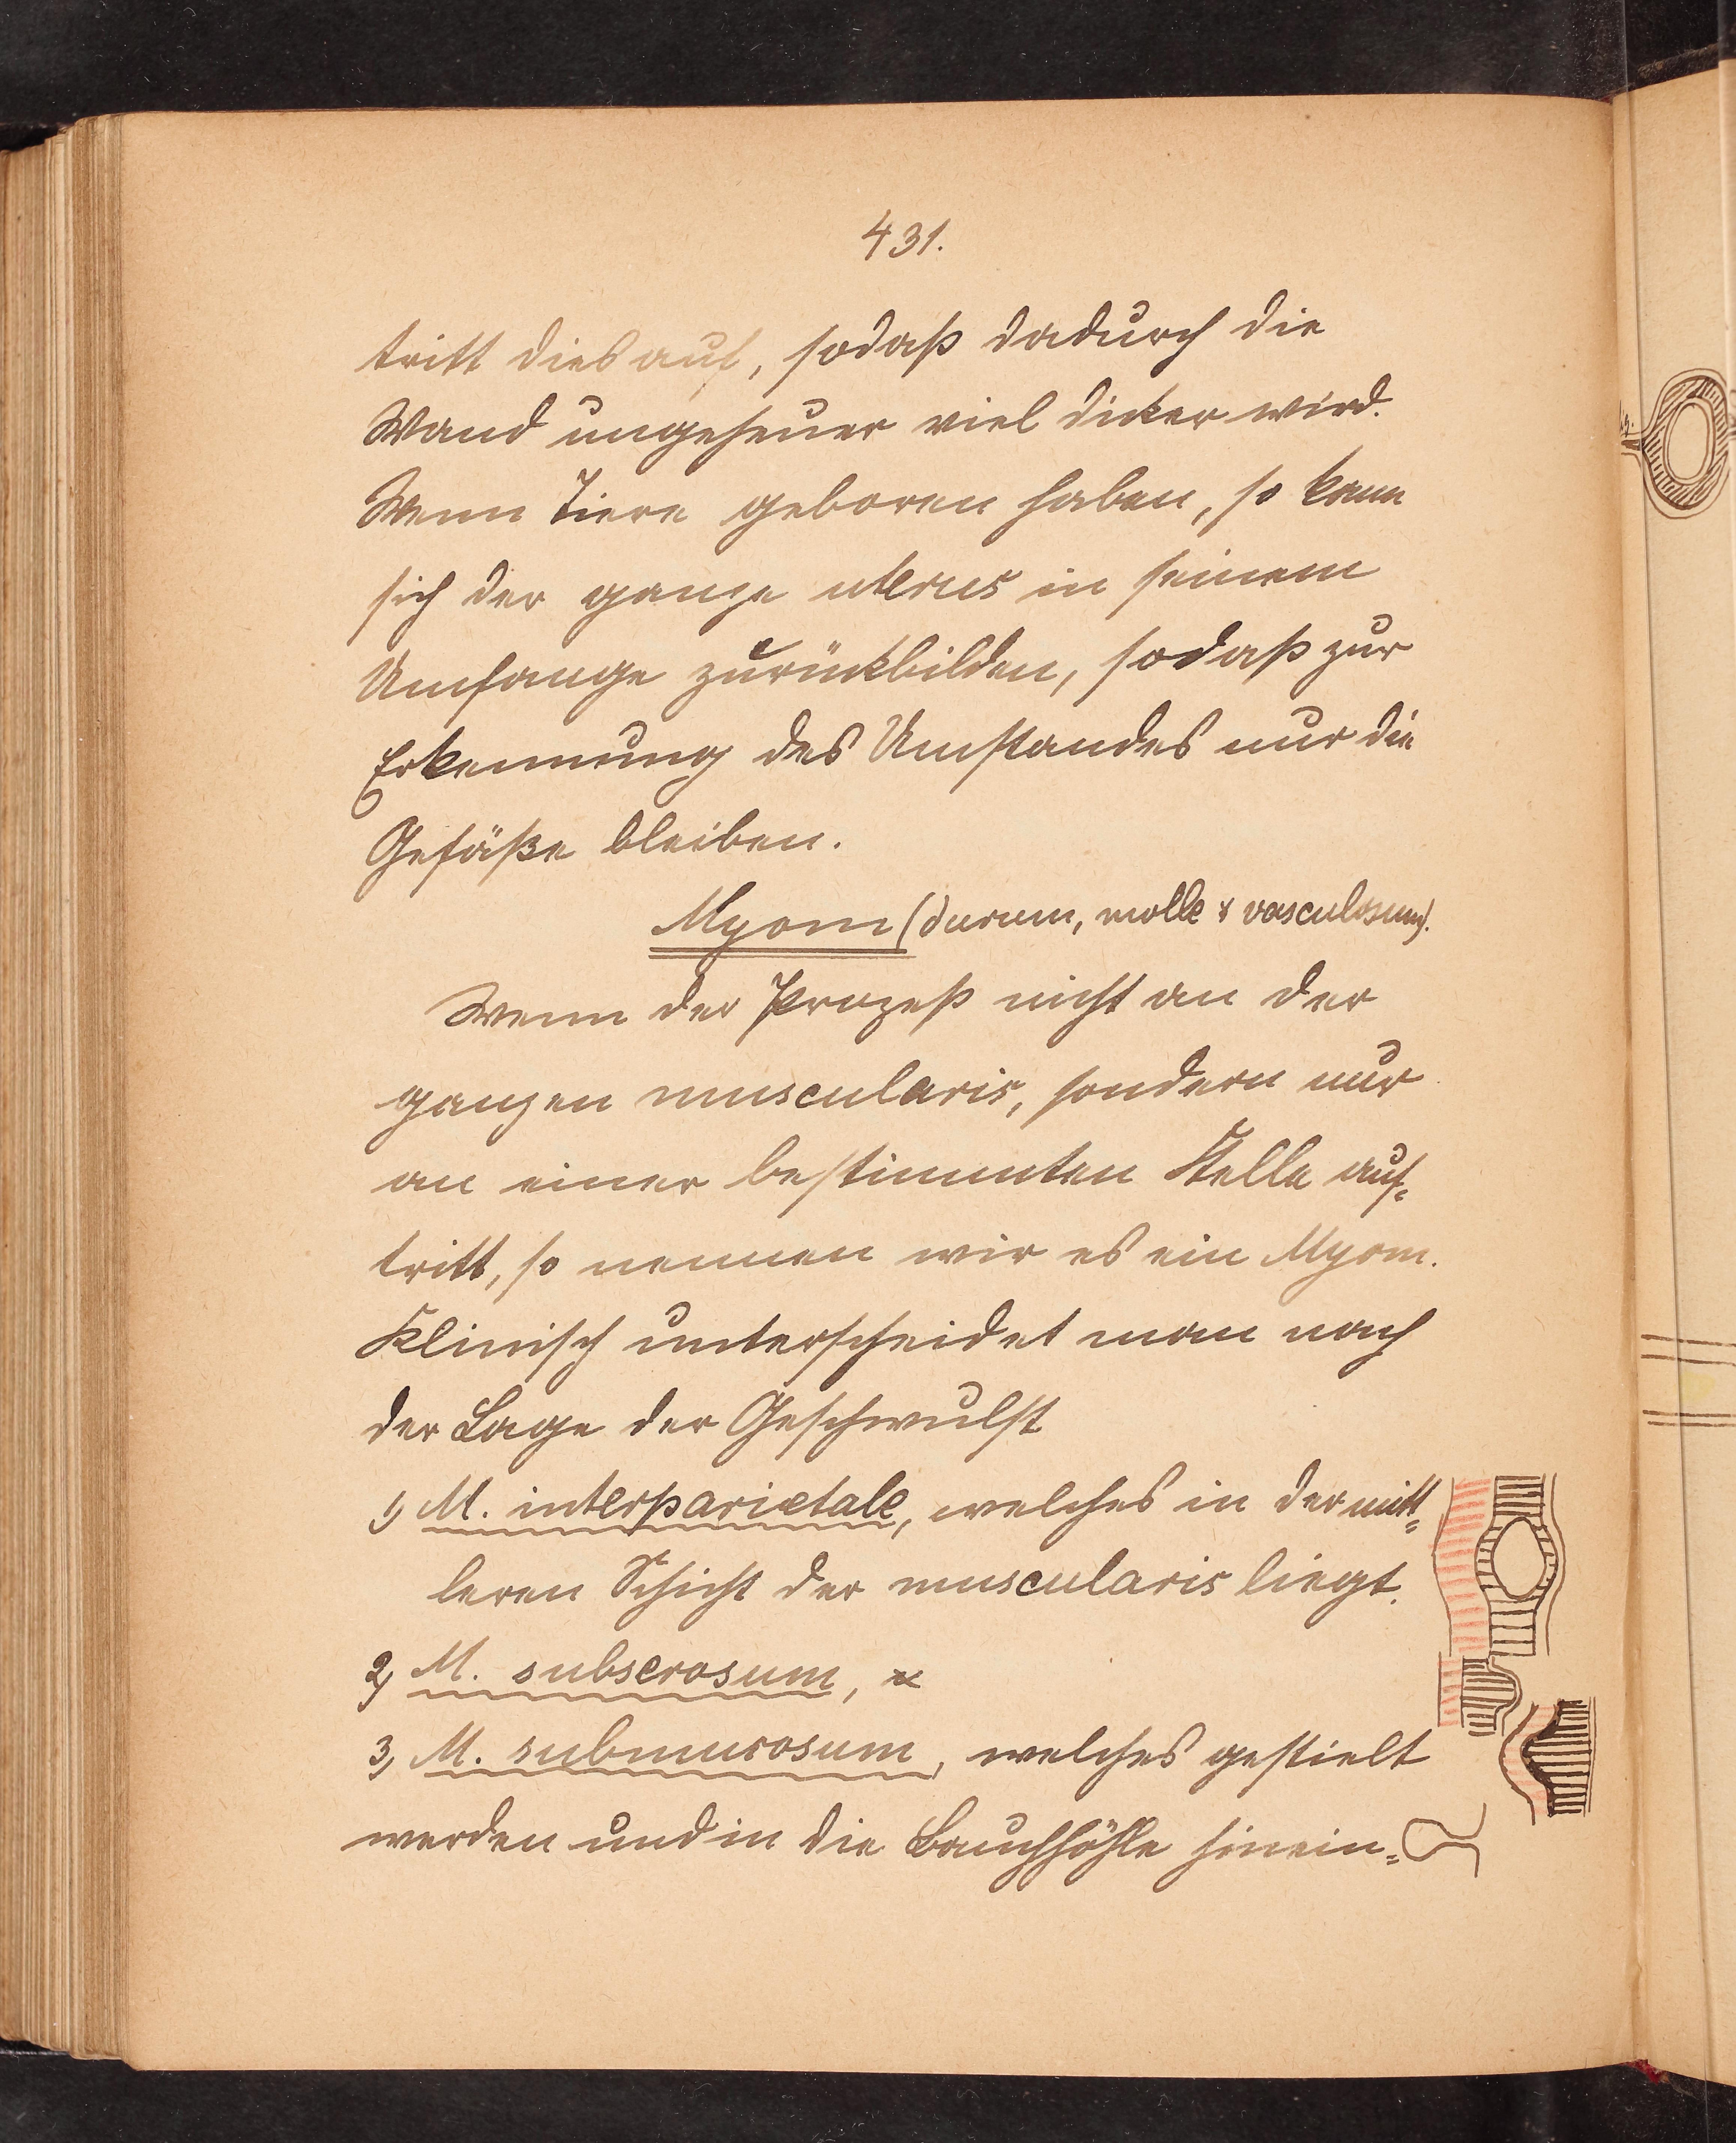 431.
tritt dies auf, sodaß dadurch die
Wand ungeheuer viel dicker wird.
Wenn Tiere geboren haben, so kann
sich der ganze uterus in seinem
Umfange zurückbilden, sodaß zur
Erkennung des Umstandes nur die
Gefäße bleiben.
Myom (durum, molle & vasculosum).
Wenn der Prozeß nicht an der
ganzen muscularis, sondern nur
an einer bestimmten Stelle auf-
tritt, so nennen wir es ein Myom.
Klinisch unterscheidet man nach
der Lage der Geschwulst
1) M. interparietale, welches in der mitt-
leren Schicht der muscularis liegt.
2) M. subserosum,
3) M. submucosum, welches gestielt
werden und in die Bauchhöhle hinein-